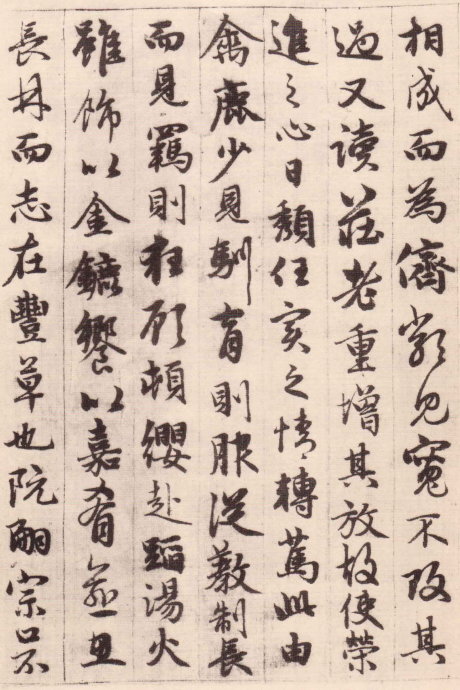 相成而為儕類見寬不攻其
過又讀莊老重增其放故使榮
進之心日頹任實之情轉篤此由
禽鹿少見馴育則服從教制長
而見羈則狂顧頓纓赴蹈湯火
雖飾以金鑣饗以嘉肴愈思
長林而志在豐草也阮嗣宗口不